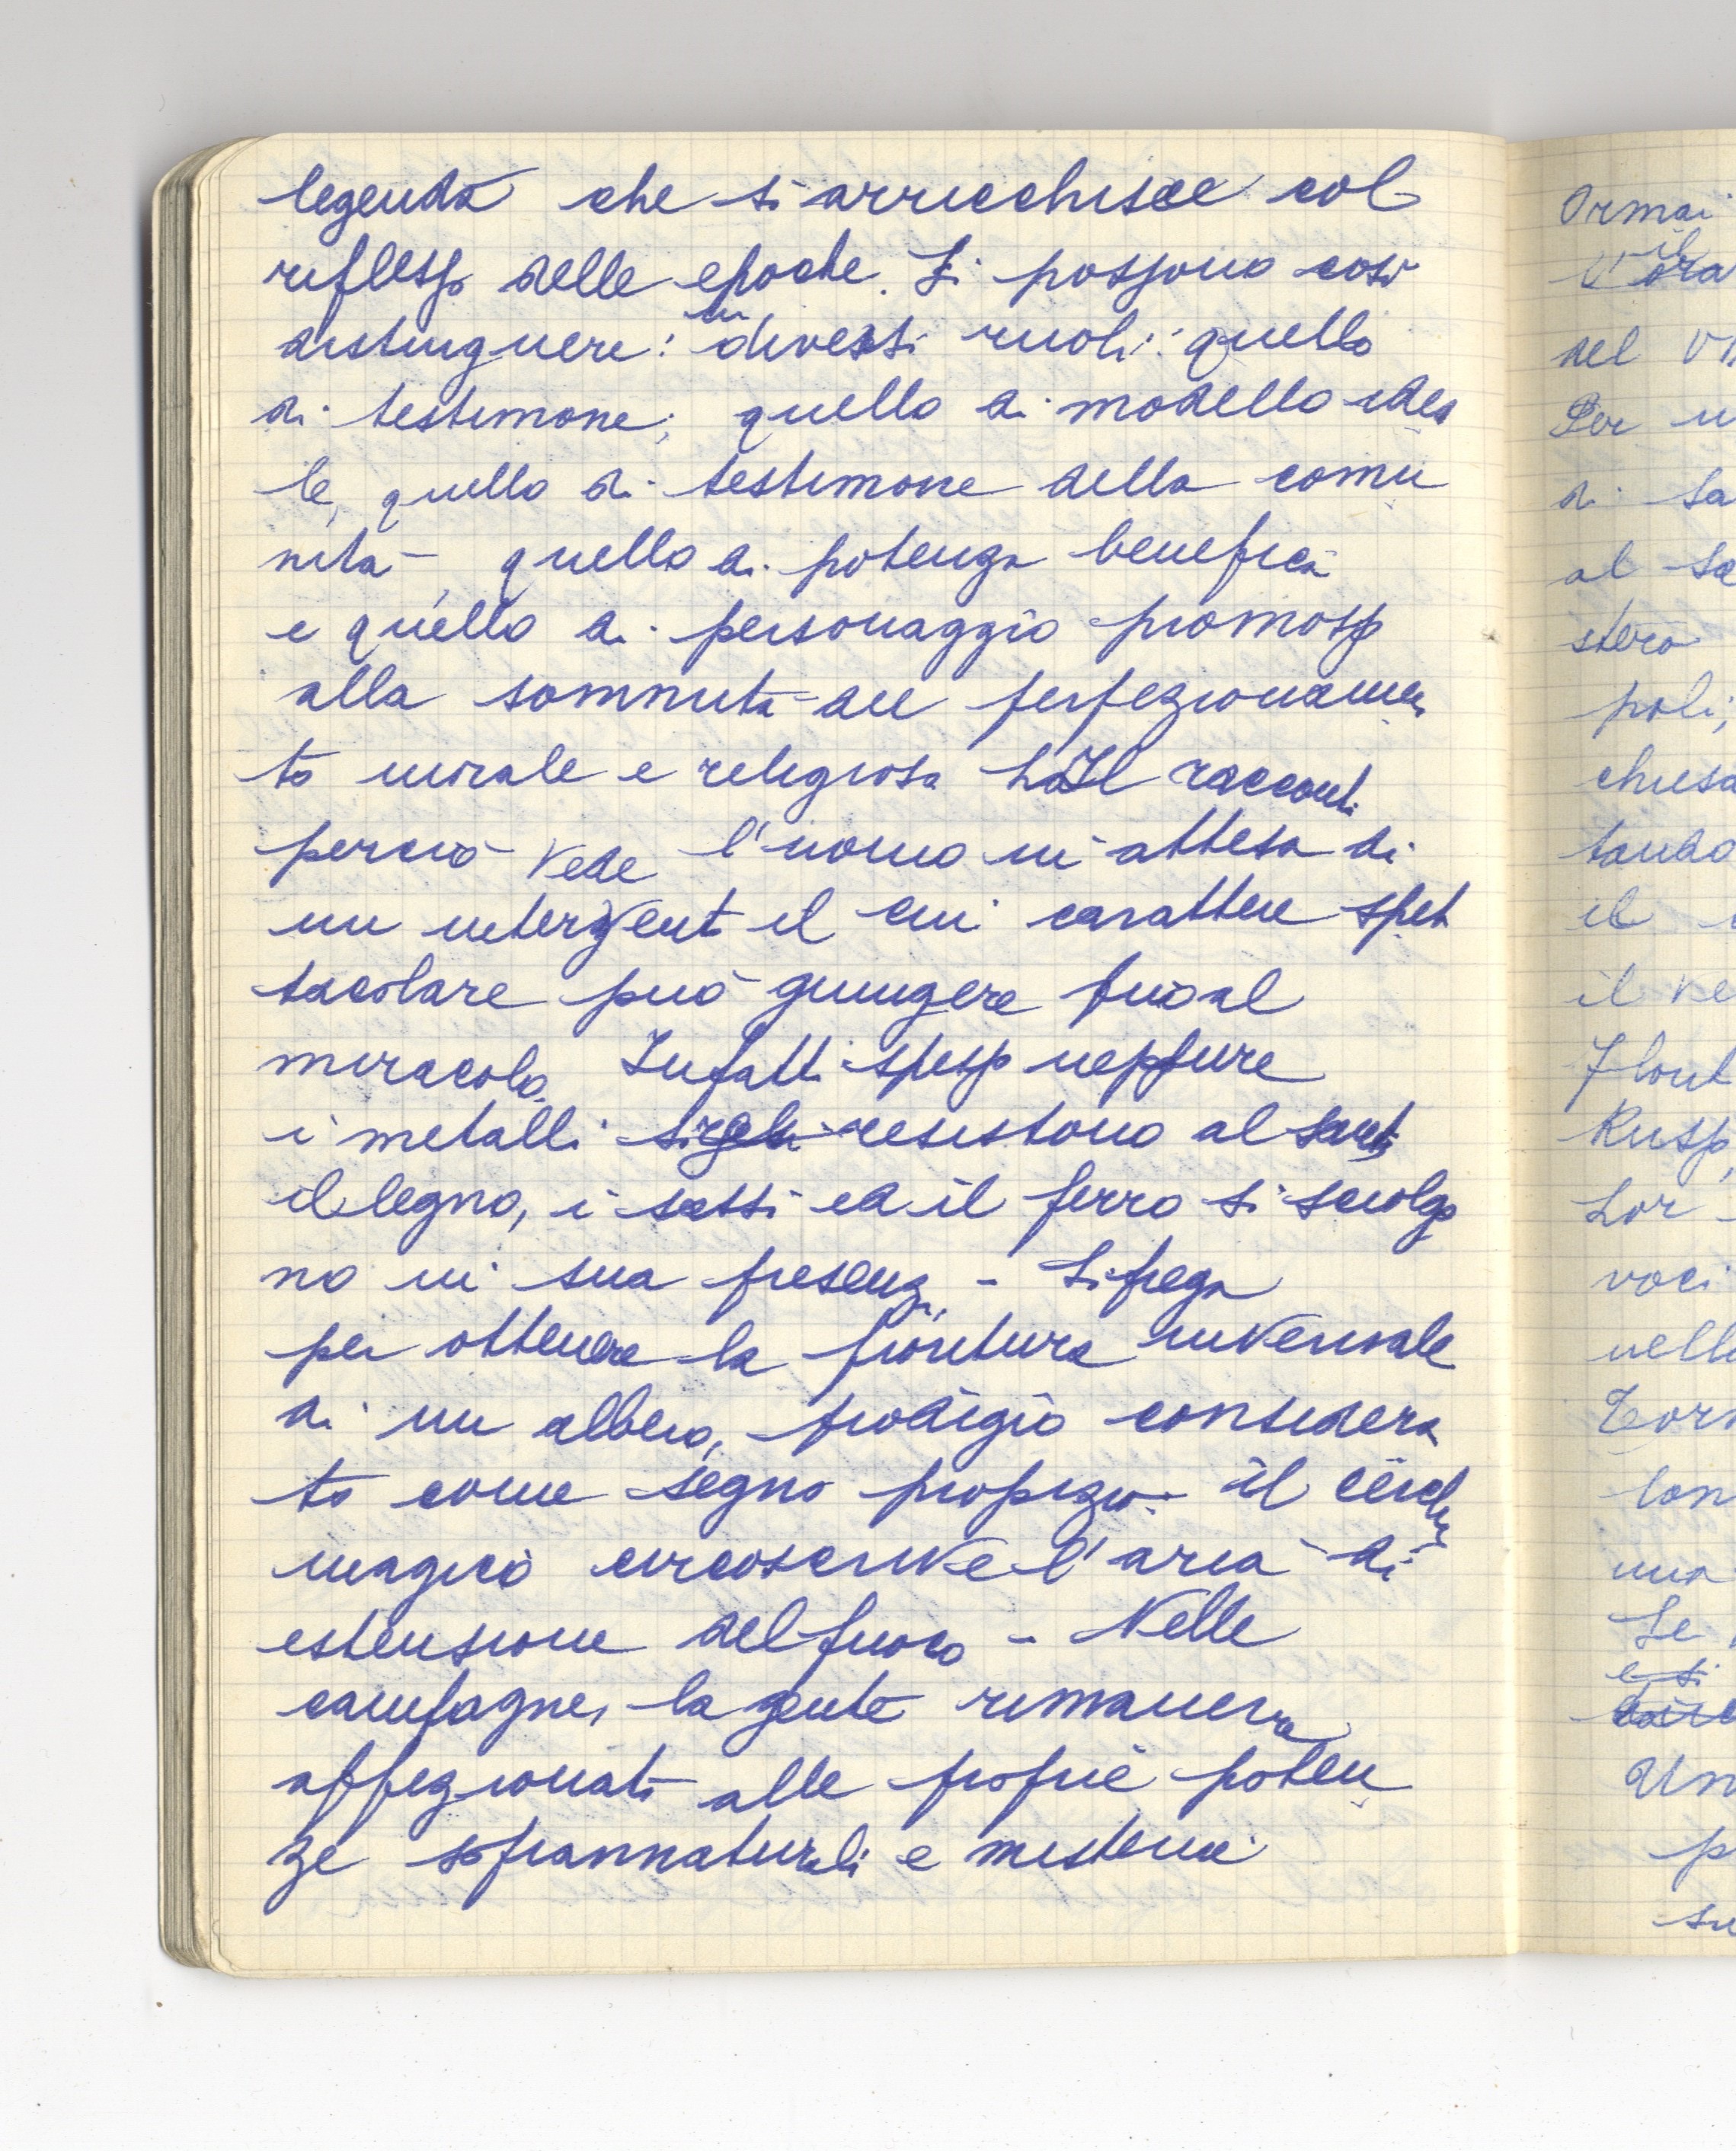 legenda che si arricchisce col
riflesso delle epoche. Si possono così
distinguere: diversi ruoli: quello
di testimone; quello di modello idea
le, quello di testimone della comu
nità, quello di potenza benefica
e quello di personaggio promosso
alla sommità del perfezionamen
to morale e religiosa Il racconti
perciò vede l'uomo in attesa di
un intervent il cui carattere spet
tacolare può giungere fino al
miracolo. Infatti spesso neppure
i metalli resistono al santo
il legno, i sassi ed il ferro si sciolgo
no in sua presenza - Si prega
per ottenere la fioritura invernale
di un albero, prodigio considera
to come segno propizio. il cerchio
magico circoscrive l'area di
estensione del fuoco - Nelle
campagne, la gente rimaneva
affezionati alle proprie poten
ze soprannaturali e misteriose
Ormai
il
l'ora
nel
Per
di
al
stero
poli,
chiesa
tando
il
il
Lor
voci
nelle
una
Le
e si
Un